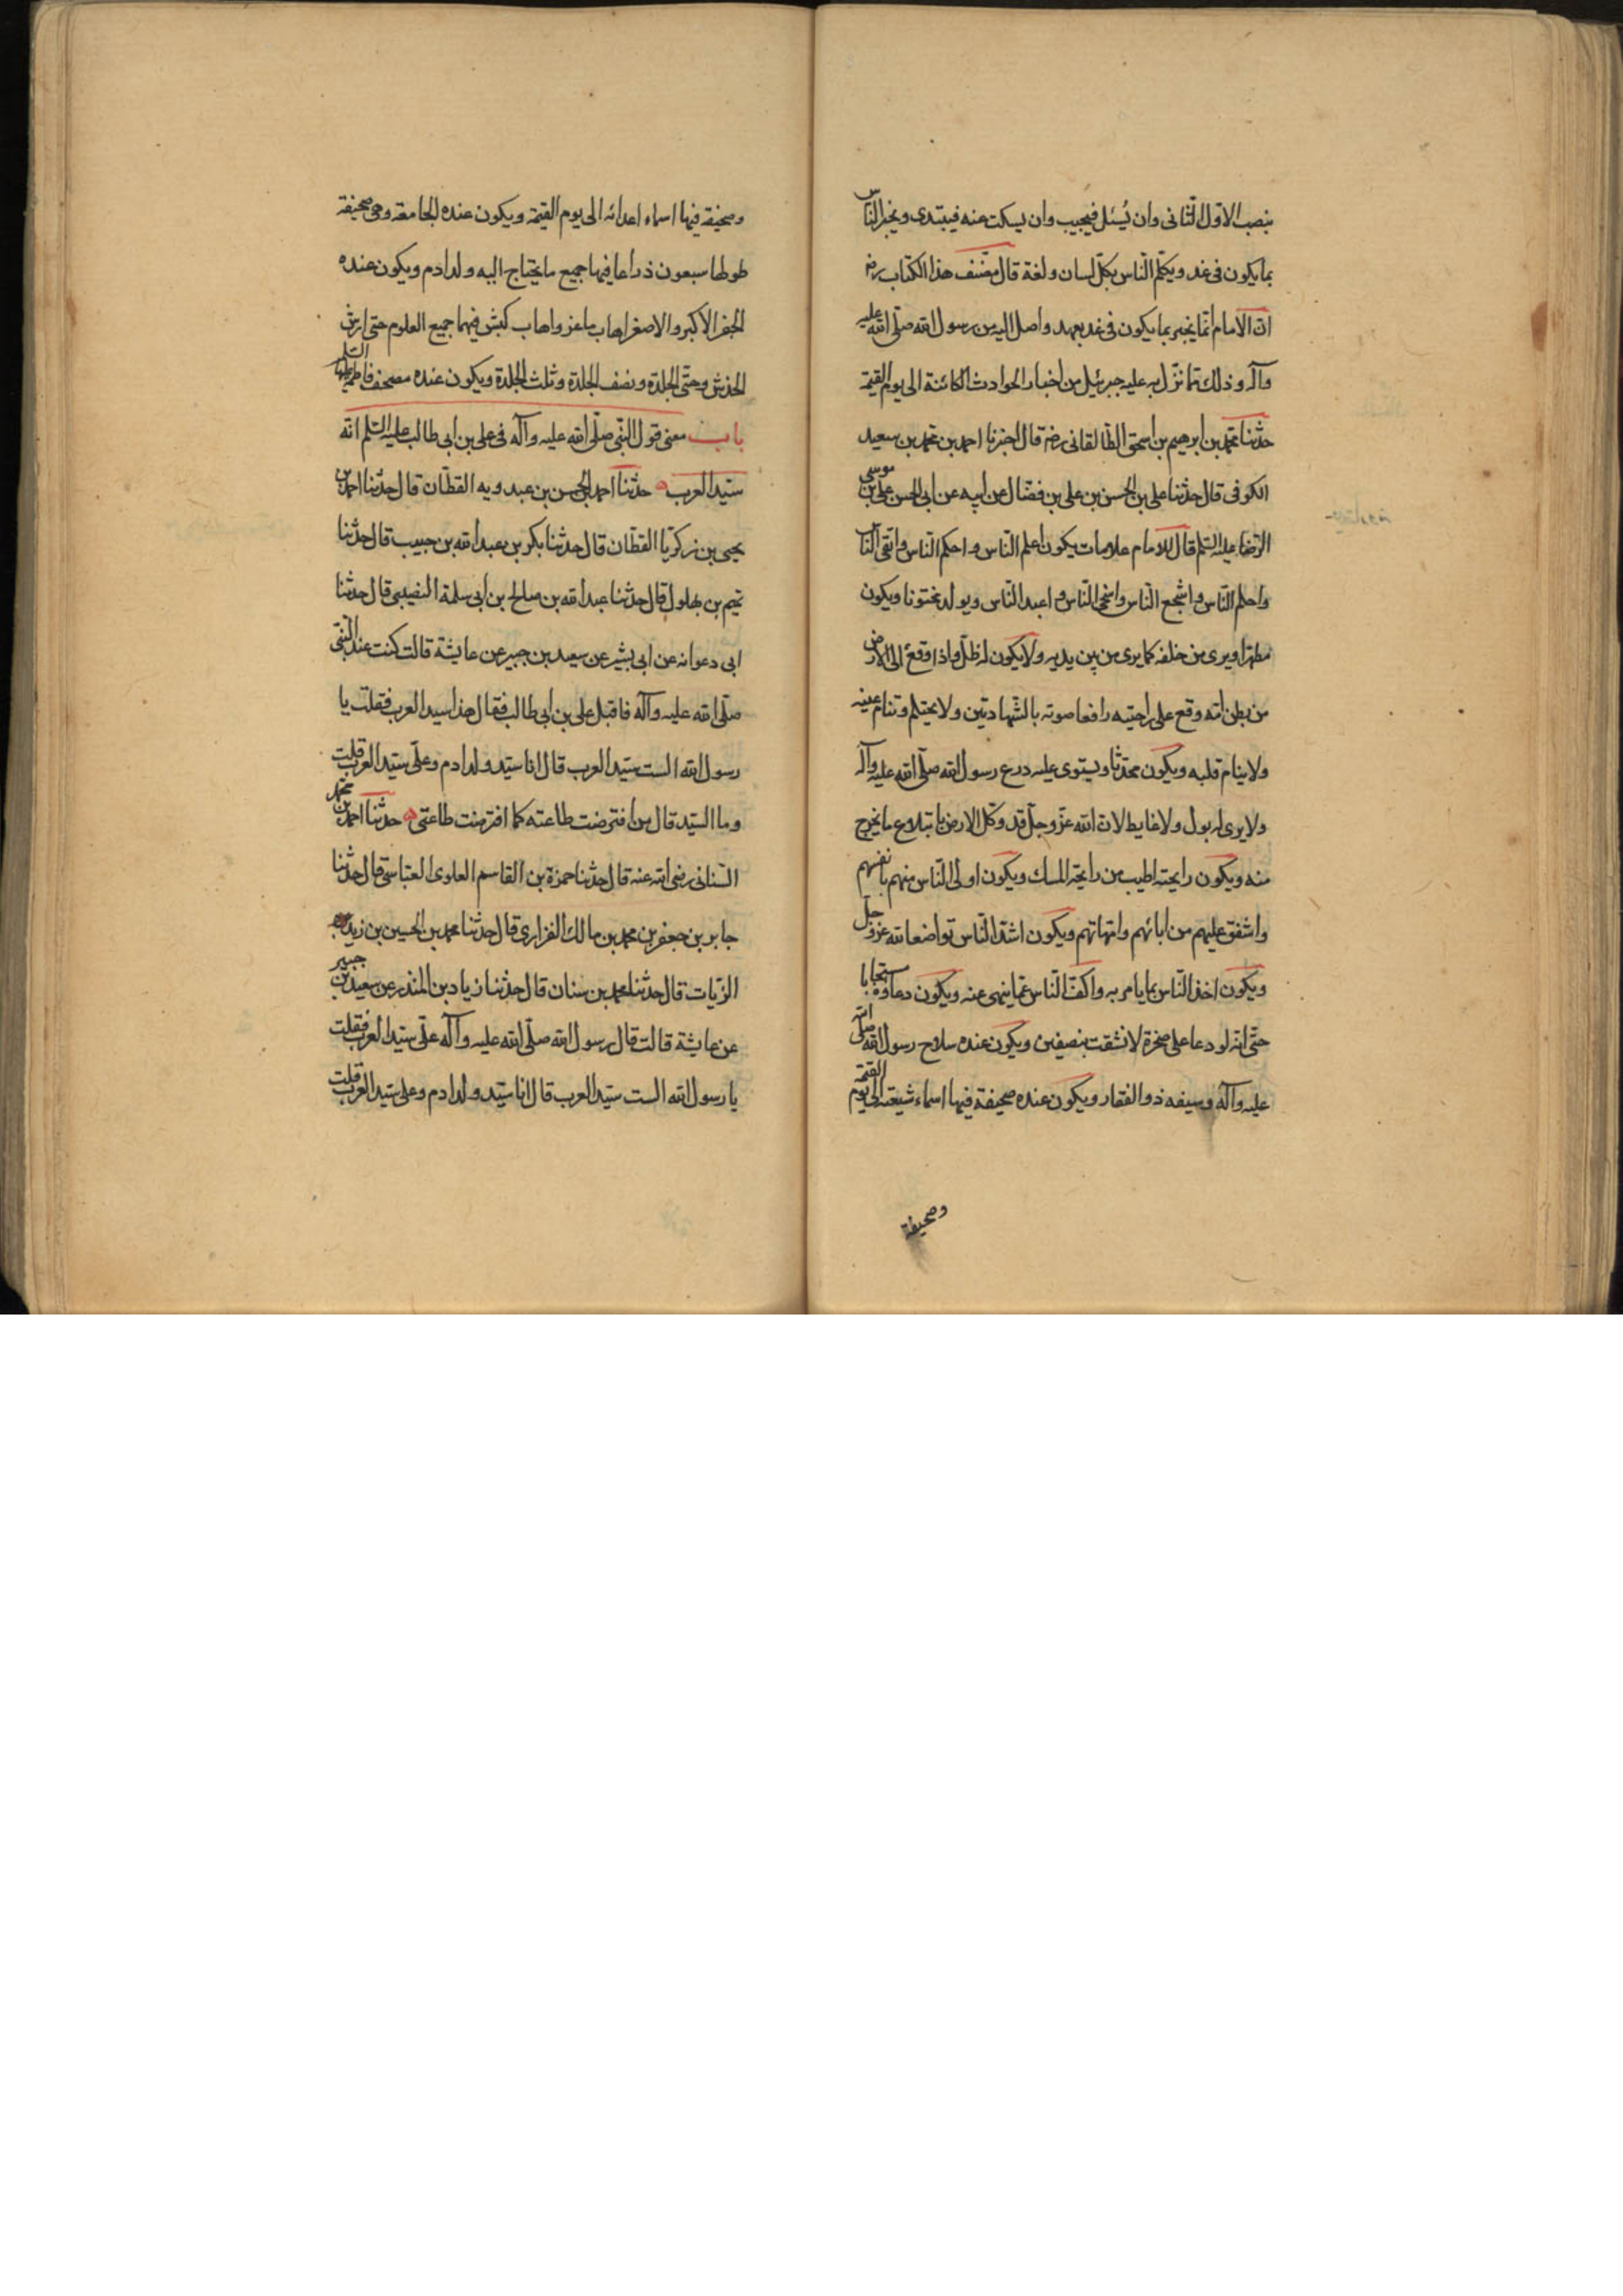 بنصب الاول الثانى وان يُسئل فيجيب وان يسكت عنه فيبتدى ويخبر الناس
بما يكون فى غد ويكلم الناس بكل لسان ولغة قال مصنف هذا الكتاب رضه
ان الامام انما يخبر بما يكون فى غد بعهد واصل اليه من رسول الله صلى الله عليه
وآله وذلك مما نزل به عليه جبرئيل من اخبار الحوادث الكائنة الى يوم القيمة
حدثنا محمد بن ابرهيم بن اسحق الطالقانى رضه قال اخبرنا احمد بن محمد بن سعيد
الكوفى قال حدثنا على بن الحسن بن على بن فضال عن ابيه عن ابى الحسن على بن موسى
الرضا عليه السلم قال للامام علامات يكون اعلم الناس واحكم الناس واتقى الناس
واحلم الناس واشجع الناس واسخى الناس واعبد الناس ويولد مختونا ويكون
مطهرا ويرى من خلفه كما يرى من بين يديه ولا يكون له ظل واذا وقع الى الارض
من بطن امه وقع على راحتيه رافعا صوته بالشهادتين ولا يحتلم وتنام عينه
ولا ينام قلبه ويكون محدثا ويستوى عليه درع رسول الله صلى الله عليه وآله
ولا يرى له بول ولا غايط لان الله عز وجل قد وكل الارض بابتلاع ما يخرج
منه ويكون رايحته اطيب من رايحة المسك ويكون اولى الناس منهم بانفسهم
واشفق عليهم من ابائهم وامهاتهم ويكون اشد الناس تواضعا لله عز وجل
ويكون اخذ الناس بما يامر به واكف الناس عما ينهى عنه ويكون دعاؤه مستجابا
حتى انه لو دعا على صخرة لانشقت بنصفين ويكون عنده سلاح رسول الله صلى الله
عليه وآله وسيفه ذو الفقار ويكون عنده صحيفة فيها اسماء شيعته الى يوم القيمة
وصحيفة
وصحيفة فيها اسماء اعدائه الى يوم القيمة ويكون عنده الجامعة وهى صحيفة
طولها سبعون ذراعا فيها جميع ما يحتاج اليه ولد ادم ويكون عنده
الجفر الاكبر والاصغر اهاب ماعز واهاب كبش فيهما جميع العلوم حتى ارش
الخدش وحتى الجلدة ونصف الجلدة وثلث الجلدة ويكون عنده مصحف فاطمة عليها السلم
باب معنى قول النبى صلى الله عليه وآله فى على بن ابى طالب عليه السلم انه
سيد العرب حدثنا احمد بن الحسن بن عبدويه القطان قال حدثنا احمد بن
يحيى بن زكريا القطان قال حدثنا بكر بن عبدالله بن حبيب قال حدثنا
تميم بن بهلول قال حدثنا عبدالله بن صالح بن ابى سلمة النصيبى قال حدثنا
ابى دعوانه عن ابى بشير عن سعيد بن جبير عن عايشة قالت كنت عند النبى
صلى الله عليه وآله فاقبل على بن ابى طالب فقال هذا سيد العرب فقلت يا
رسول الله الست سيد العرب قال انا سيد ولد ادم وعلى سيد العرب قلت
وما السيد قال من افترضت طاعته كما افترضت طاعتى حدثنا احمد بن محمد
السنانى رضى الله عنه قال حدثنا حمزة بن القاسم العلوى العباسى قال حدثنا
جابر بن جعفر بن محمد بن مالك الفزارى قال حدثنا محمد بن الحسين بن زيد
الزيات قال حدثنا محمد بن سنان قال حدثنا زياد بن المنذر عن سعيد بن جبير
عن عايشة قالت قال رسول الله صلى الله عليه وآله على سيد العرب فقلت
يا رسول الله الست سيد العرب قال انا سيد ولد ادم وعلى سيد العرب قلت